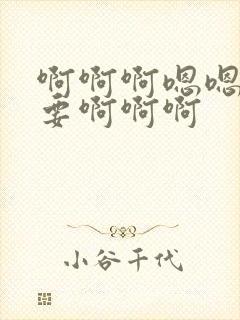 啊啊啊嗯嗯
要啊啊啊
小谷千代